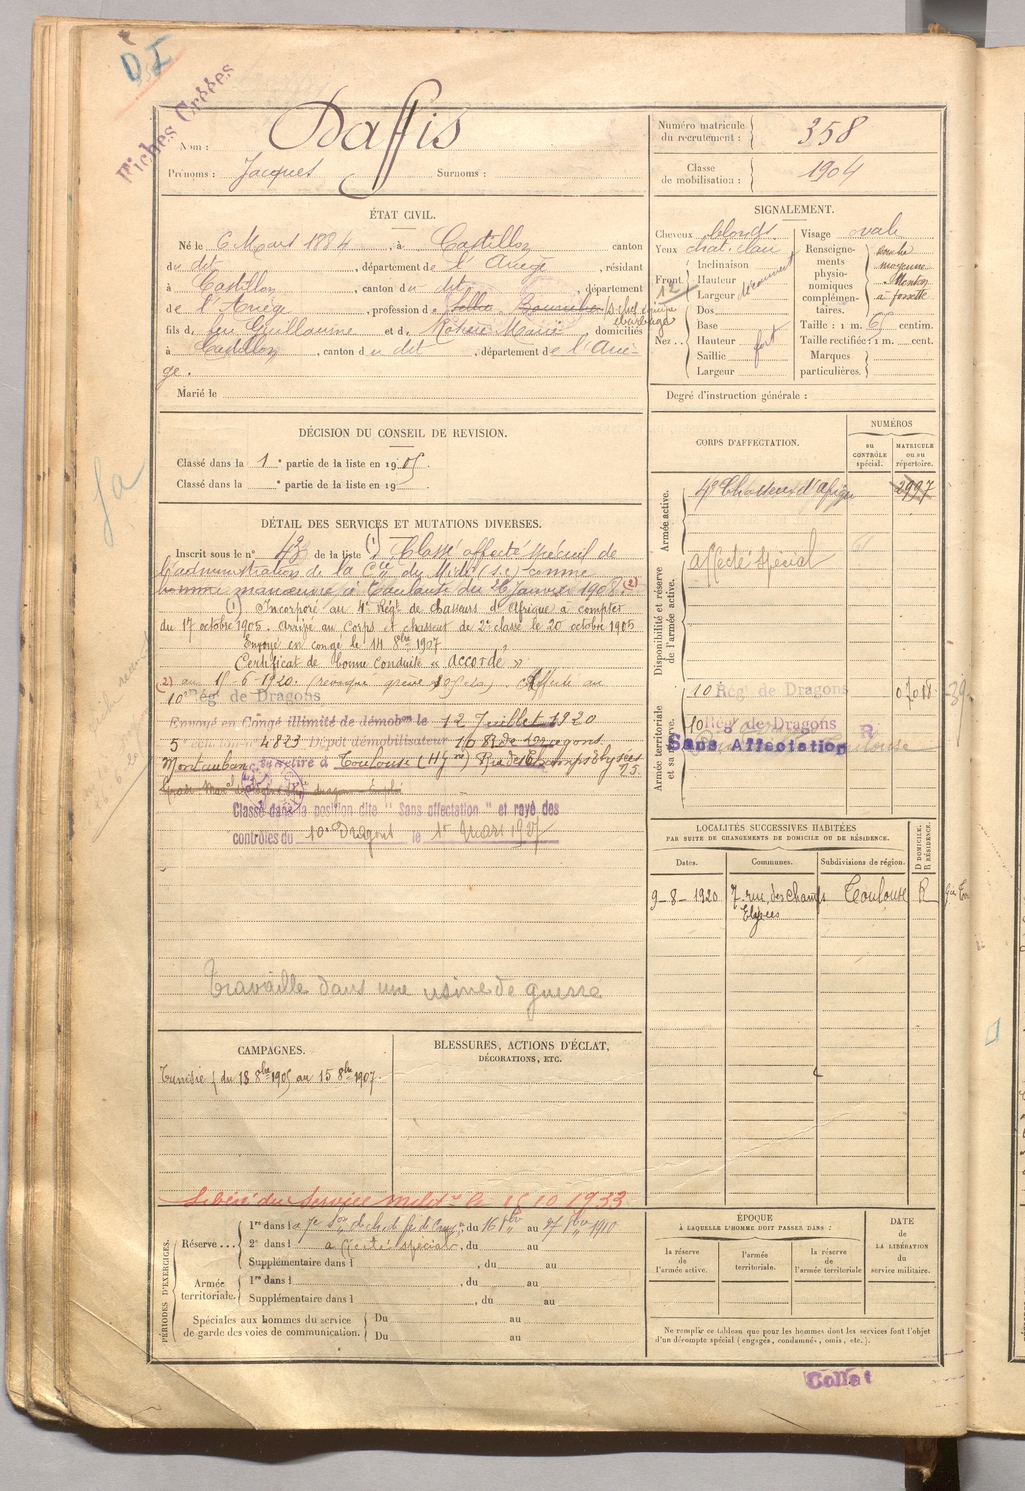 D I
Fiches Créées
Nom : Daffis
Prénoms : Jacques Surnoms :
Numéro matricule du recrutement : 358
Classe de mobilisation : 1904
ÉTAT CIVIL.
Né le 6 Mars 1884, à Castillon canton
du dit, département de l'Ariège, résidant
à Castillon, canton du dit, département
de l'Ariège, profession de
fils de feu Guillaume et de Marie domiciliés
à Castillon, canton du dit, département de l'Ariè-
ge.
Marié le
SIGNALEMENT.
Cheveux blonds
Yeux chat. clair
Front
Inclinaison
Hauteur
Largeur découvert
Nez
Dos
Base
Hauteur fort
Saillie
Largeur
Visage ovale
Renseignements physionomiques complémentaires.
bouche
moyenne
Menton
à fossette
Taille : 1 m. 65 centim.
Taille rectifiée : 1 m. cent.
Marques particulières.
Degré d'instruction générale :
DÉCISION DU CONSEIL DE REVISION.
Classé dans la 1e partie de la liste en 1905.
Classé dans la e partie de la liste en 19
DÉTAIL DES SERVICES ET MUTATIONS DIVERSES.
Inscrit sous le n° 43 de la liste (1) Classé affecté spécial de
l'administration de la Cie du Midi (s.e) comme
homme manœuvre à Toulouse du 26 Janvier 1908. (2)
(1) Incorporé au 4e Régt de chasseurs d'Afrique à compter
du 17 octobre 1905. Arrivé au Corps et chasseur de 2e classe le 20 octobre 1905
Envoyé en congé le 14 8bre 1907
Certificat de bonne conduite « accordé »
(2) au 15-6-1920. (révoqué grève Affecté au
10e Rég. de Dragons
Envoyé en Congé illimité de démobon le 12 Juillet 1920
5e échelon n° 4823 Dépôt démobilisateur 10 R de Dragons
Montauban se retire à Toulouse (Hte Gne) Rue des Champs Elysées
75
Classé dans la position dite "Sans affectation" et rayé des
contrôles du 10e Dragons le 1er Mars 1927
Travaille dans une usine de guerre
CORPS D'AFFECTATION.
NUMÉROS
au CONTRÔLE spécial.
MATRICULE ou au répertoire.
Armée active.
4e Chasseurs d'Afrique 2997
Disponibilité et réserve de l'armée active.
affecté spécial
Armée territoriale et sa réserve.
10 Rég. de Dragons 07018
10 Rég. de Dragons R
Sans Affectation
LOCALITÉS SUCCESSIVES HABITÉES
PAR SUITE DE CHANGEMENTS DE DOMICILE OU DE RÉSIDENCE.
Dates. Communes. Subdivisions de région. D DOMICILE. R RÉSIDENCE.
9-8-1920 7 rue des Champs Elysées Toulouse R
CAMPAGNES.
Tunisie / du 18 8bre 1905 au 15 8bre 1907
BLESSURES, ACTIONS D'ÉCLAT,
DÉCORATIONS, ETC.
Libéré du service milit. le 15 10 1933
PÉRIODES D'EXERCICES.
Réserve... 1re dans l a 7e Son de ch. de fer de Camp. du 16 au 27 1910
2e dans l affecté spécial, du au
Supplémentaire dans l , du au
Armée territoriale. 1re dans l , du au
Supplémentaire dans l , du au
Spéciales aux hommes du service de garde des voies de communication.
Du au
Du au
ÉPOQUE
À LAQUELLE L'HOMME DOIT PASSER DANS :
la réserve de l'armée active.
l'armée territoriale.
la réserve de l'armée territoriale
DATE de LA LIBÉRATION du service militaire.
Ne remplir ce tableau que pour les hommes dont les services font l'objet
d'un décompte spécial (engagés, condamnés, omis, etc.).
Collat